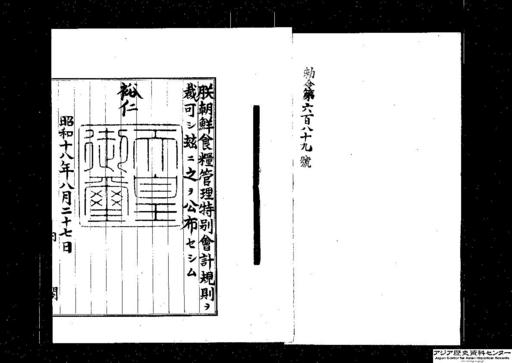 勅令第六百八十九號
朕朝鮮食糧管理特別會計規則ヲ
裁可シ玆ニ之ヲ公布セシム
裕仁
天皇
御璽
昭和十八年八月二十七日
内閣
アジア歴史資料センター
Japan Center for Asian Historical Records